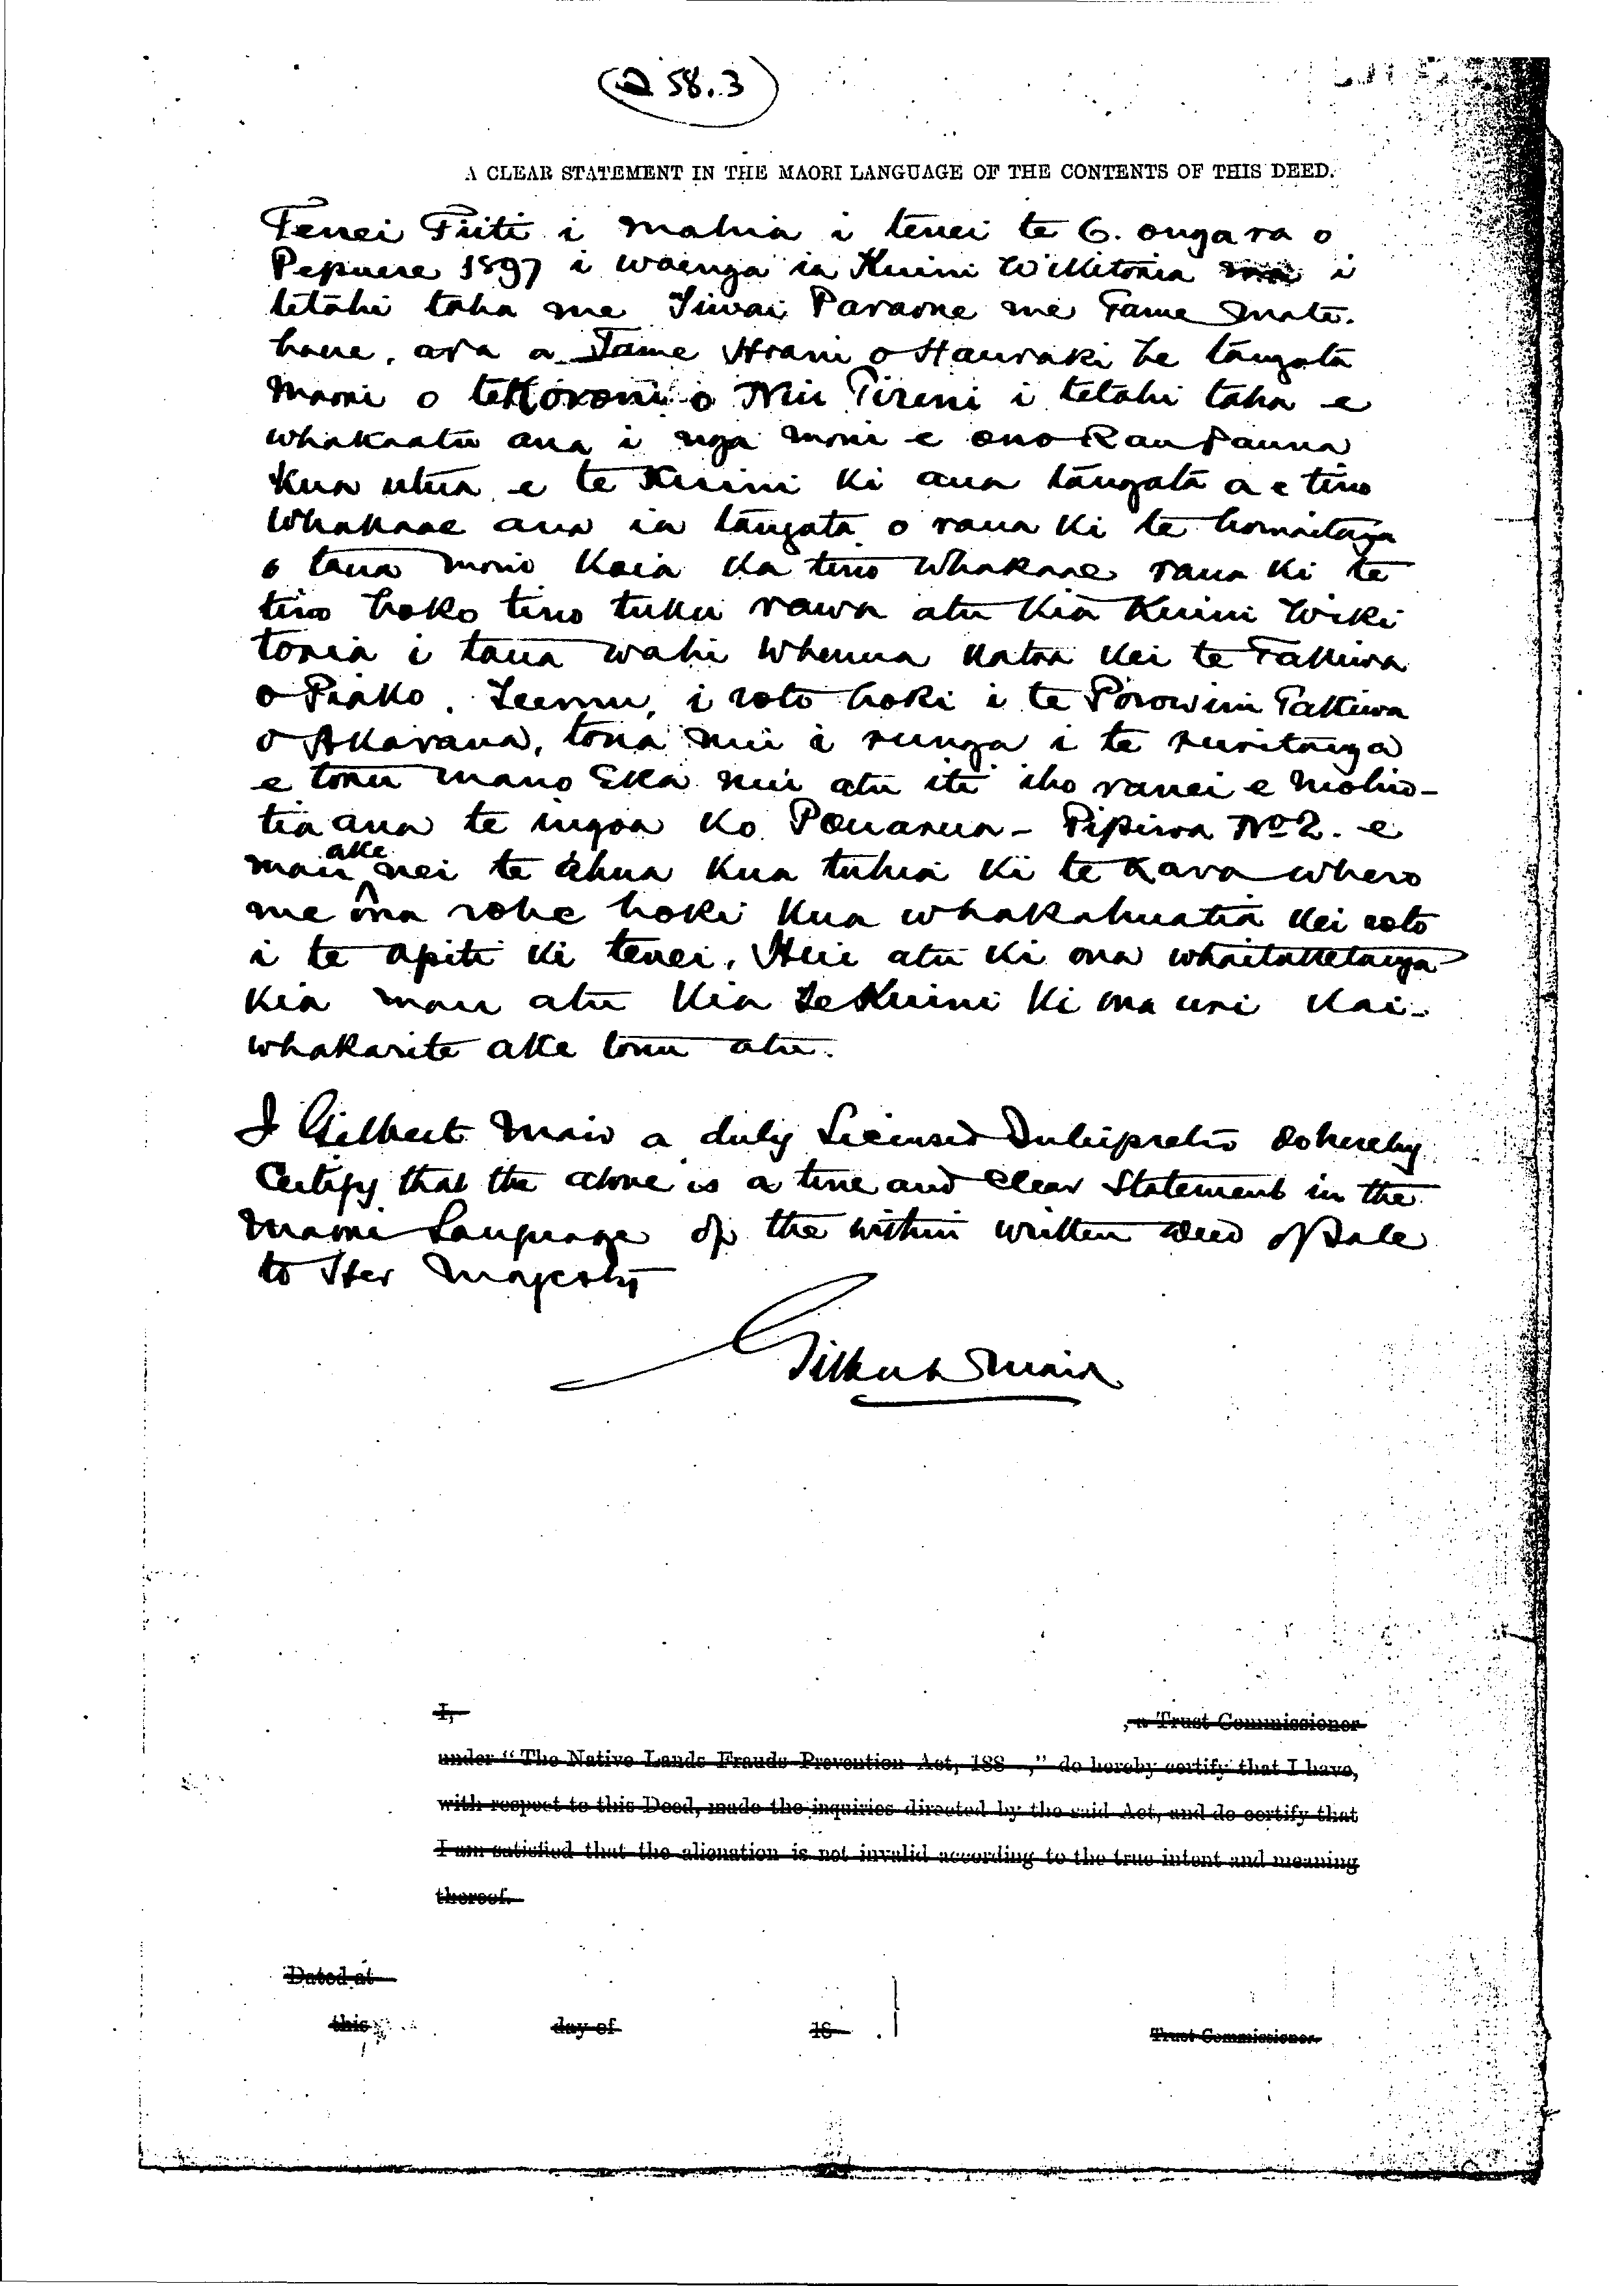 (Q 58.3)
A CLEAR STATEMENT IN THE MAORI LANGUAGE OF THE CONTENTS OF THIS DEED.
Tenei Tiiti i mahia i tenei te 6. onga ra o
Pepuere 1897 i waenga ia Kuini Wikitoria i
tetahi taha me Tiwai Paraone me Tame Mate-
hae, ara a Tame Hrani o Hauraki he tangata
Maori o te Koroni o Niu Tireni i tetahi taha e
whakaatu ana i nga moni e ono Rau Pauna
Kua utua e te Kuini ki aua tangata a e tino
Whakaae ana ia tangata o raua Ki te homaitanga
o taua moni Koia Ka tino Whakaae raua Ki te
tino hoko tino tuku rawa atu Kia Kuini Wiki
toria i taua wahi Whenua Katoa Kei te Takiwa
o Piako, i roto hoki i te Porowini Takiwa
o Akarana, tona nui i runga i te ruritanga
e toru mano Eka nui atu iti iho ranei e Mohio-
tia ana te ingoa Ko Pouarua - Pipiroa No 2. e
mau ake nei te ahua Kua tuhia Ki te Kara whero
me ona rohe hoki Kua whakahuatia Kei roto
i te apiti Ki tenei. Hui atu Ki ona whaitaketanga
Kia mau atu Kia te Kuini Ki ona uri Kai-
whakarite ake tonu atu.
I Gilbert Mair a duly Licensed Interpreter do hereby
Certify that the above is a true and Clear Statement in the
Maori Language of the within written deed of Sale
to Her Majesty
Gilbert Mair
I, , a Trust Commissioner
under "The Native Lands Frauds Prevention Act, 188 ," do hereby certify that I have,
with respect to this Deed, made the inquiries directed by the said Act, and do certify that
I am satisfied that the alienation is not invalid according to the true intent and meaning
thereof.
Dated at
this day of 18 .
Trust Commissioner.